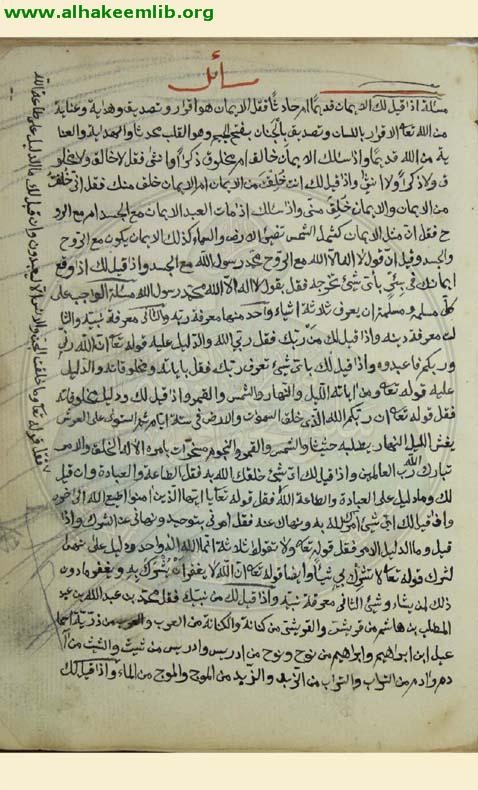 www.alhakeemlib.org
مسائل
مسئلة اذا قيل لك الايمان قديما ام حادثا فقل الايمان هو اقرار وتصديق وهداية وعناية
من الله تعالى الاقرار باللسان وتصديق بالجنان بفتح الجيم وهو القلب محدثا والهداية والعنا
ية من الله قديما واذا سئلك الايمان خالق ام مخلوق ذكرا وانثى فقل لا خالق ولا مخلو
ق ولا ذكرا ولا انثى واذا قيل لك انت خلقت من الايمان ام الايمان خلق منك فقل اني خلقت
من الايمان والايمان خلق متى واذا سئلك اذا مات العبد الايمان مع الجسد ام مع الرو
ح فقل ان مثل الايمان كمثل الشمس تضيئ الارض والسماء كذلك الايمان يكون مع الروح
والجسد وقيل ان قوله لا اله الا الله مع الروح محمد رسول الله مع الجسد واذا قيل لك اذا وقع
ايمانك في بئر باي شئ تخرجه فقل بقول لا اله الا الله محمد رسول الله مسئلة الواجب على
كل مسلم ومسلمة ان يعرف ثلاثة اشياء واحد منها معرفة ربه والثاني معرفة نبيه والثا
لث معرفة دينه واذا قيل لك من ربك فقل ربي الله والدليل عليه قوله تعالى ان الله ربي
وربكم فاعبدوه واذا قيل لك باي شئ تعرف ربك فقل باياته ومخلوقاته والدليل
عليه قوله تعالى ومن اياته الليل والنهار والشمس والقمر واذا قيل لك ودليل مخلوقاته
فقل قوله تعالى ان ربكم الله الذي خلق السموات والارض في ستة ايام ثم استوى على العرش
يغش الليل النهار يطلبه حثيثا والشمس والقمر والنجوم مسخرات بامره الا له الخلق والامر
تبارك الله رب العالمين واذا قيل لك اي شئ خلقك الله به فقل الطاعة والعبادة وان قيل
لك وما دليل على العبادة والطاعة الله فقل قوله تعالى يا ايها الذين امنوا اطيعوا الله الى اخره
واذا قيل لك اي شئ امرك الله به ونهاك عنه فقل امرني بتوحيد ونهاني عن الشرك واذا
قيل وما الدليل الامر فقل قوله تعالى ولا تقولوا ثلاثة انما الله اله واحد ودليل على نهي ا
لشرك قوله تعالى لا تشرك بي شيئا وايضا قوله تعالى ان الله لا يغفر ان يشرك به ويغفر ما دون
ذلك لمن يشاء وشئ الثاني معرفة نبيه واذا قيل لك من نبيك فقل محمد بن عبد الله بن عبد
المطلب بن هاشم من قريش والقريش من كنانة والكنانة من العرب والعرب من ذرية اسما
عيل ابن ابراهيم وابراهيم من نوح ونوح من ادريس وادريس من شيث والشيث من آ
دم وادم من التراب والتراب من الزبد والزبد من الموج والموج من الماء واذا قيل لك
وان قيل لك ما الدليل على طاعة الله
فقل قوله تعالى وما خلقت الجن والانس الا ليعبدون